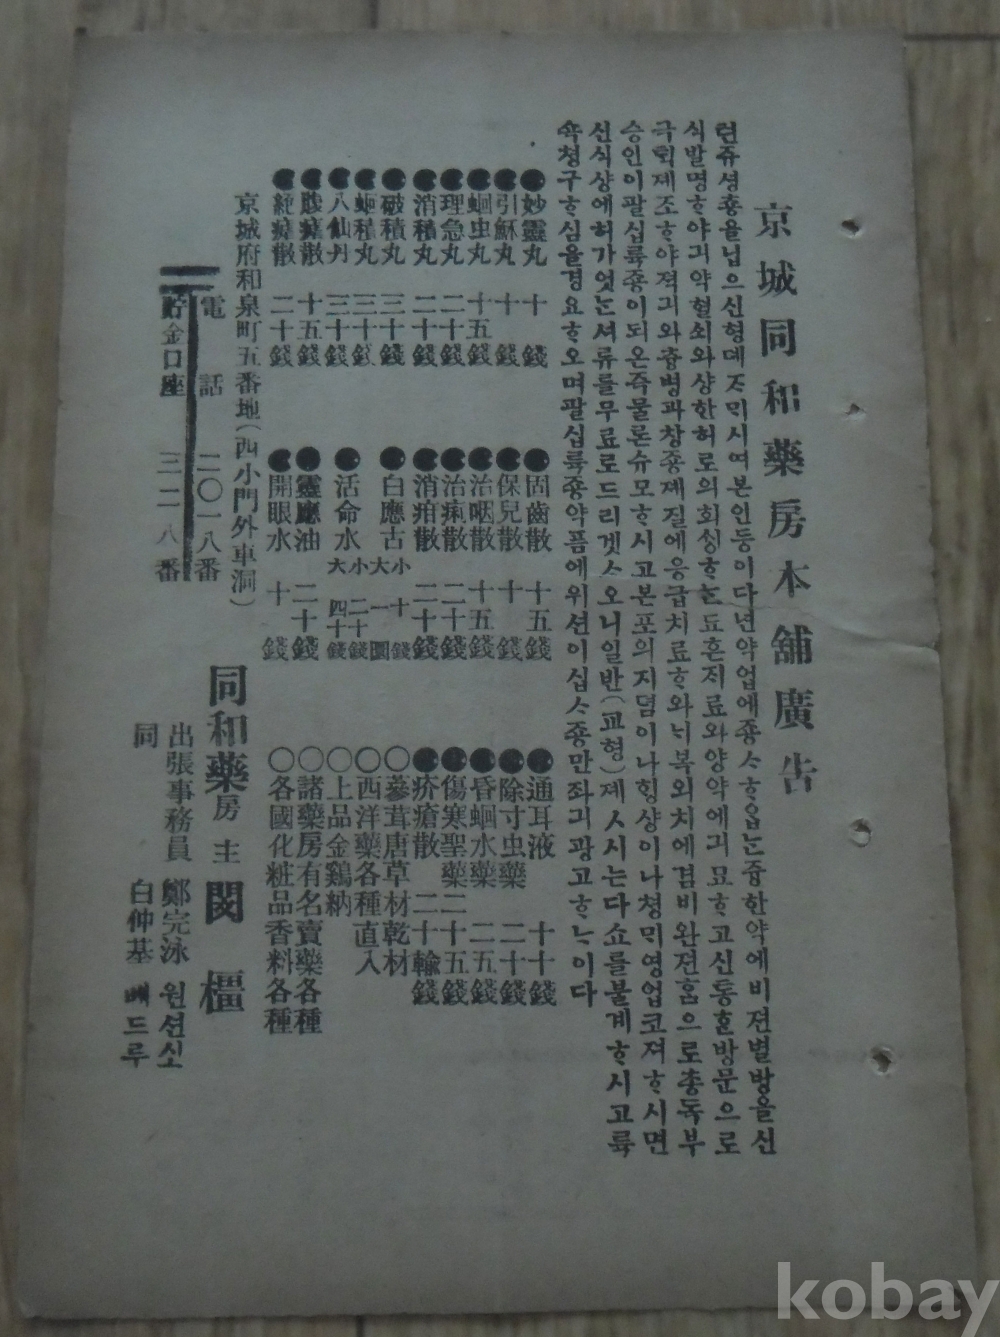 京城同和藥房本舖廣告
련쥬셩춍율닙으신형뎨ᄌᆞᄆᆡ시여본인등이다년약업에죵ᄉᆞᄒᆞ옵ᄂᆞᆫ즁한약에비젼별방을신
식발명ᄒᆞ야긔약혈쇠와샹한허로의회싱ᄒᆞᄂᆞᆫ됴흔ᄌᆡ료와양약에긔묘ᄒᆞ고신통ᄒᆞᆫ방문으로
극퇵졔조ᄒᆞ야져긔와츙병과창죵졔질에응급치료ᄒᆞ와ᄂᆡ복외치에겸비완젼홈으로총독부
승인이팔십륙죵이되온즉물론슈모ᄒᆞ시고본포의지뎜이나ᄒᆡᆼ샹이나쳥ᄆᆡ영업코져ᄒᆞ시면
신식샹에허가엇ᄂᆞᆫ셔류를무료로드리겟ᄉᆞ오니일반(교형)졔시ᄂᆞᆫ다쇼를불계ᄒᆞ시고륙
쇽쳥구ᄒᆞ심을경요ᄒᆞ오며팔십륙죵약픔에위션이십ᄉᆞ죵만좌긔광고ᄒᆞᄂᆞ이다
●妙靈丸 十錢
●引穌丸 十錢
●蛔虫丸 十五錢
●理急丸 二十錢
●消積丸 二十錢
●破積丸 三十錢
●蛔積丸 三十錢
●八仙丹 三十錢
●腹瘧散 十五錢
●絶瘧散 二十錢
●固齒散 十五錢
●保兒散 十錢
●治咽散 十五錢
●治痢散 二十錢
●消疳散 二十錢
●白應古 小 十錢 大 一圜
●活命水 小 二十錢 大 四十錢
●靈應油 二十錢
●開眼水 十錢
●通耳液 十十錢
●除寸虫藥 二十錢
●昏蛔水藥 二五錢
●傷寒聖藥 二十五錢
●疥瘡散 二十錢
○蔘茸唐草材乾材
○西洋藥各種直入
○上品金鷄納
○諸藥房有名賣藥各種
○各國化粧品香料各種
京城府和泉町五番地(西小門外車洞)
電話 二〇一八番
貯金口座 三二八番
同和藥房主 閔橿
出張事務員 鄭完泳 원션쇠
同 白仲基 베드루
kobay